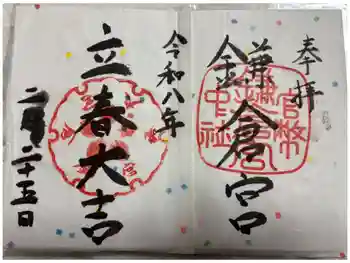 奉拝
鎌倉宮
官幣
中社
令和八年
立春大吉
二月二十五日